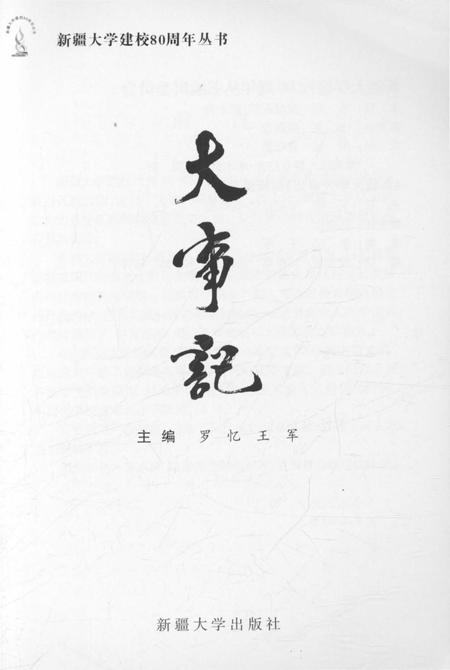 新疆大学建校80周年丛书
大
事
記
主编 罗忆王军
新疆大学出版社